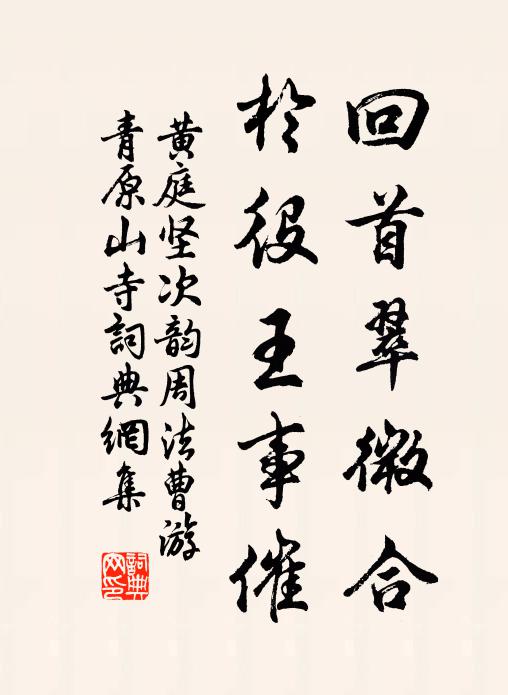 回首翠微合
於役王事催
黄庭坚次韵周法曹游
青原山寺詞典網集
詞典网印